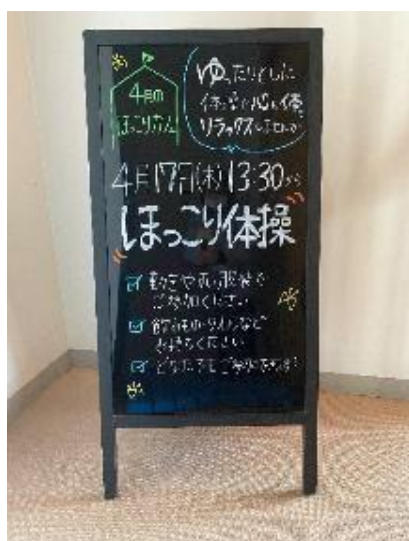 4月の
ほっこりカフェ
ゆったりとした
体操で心も体も
リラックスしませんか
4月17日(木)13:30から
ほっこり体操
動きやすい服装で
ご参加ください
飲みもの・タオルなど
お持ちください
どなたでもご参加